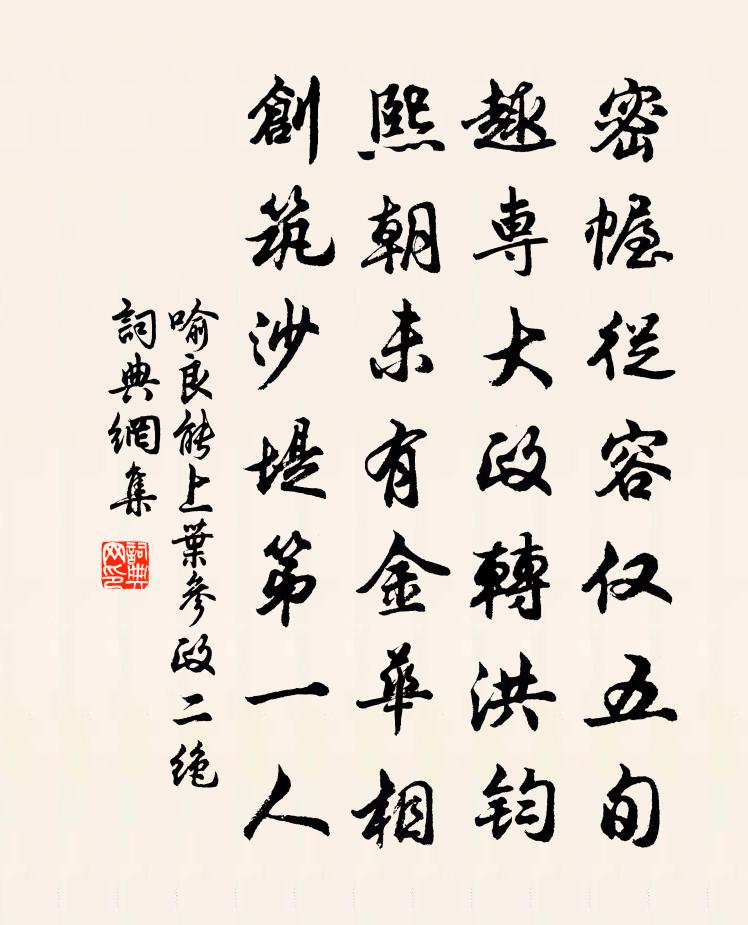 密幄從容仅五旬
趣専大政轉洪鈞
熙朝未有金華相
創筑沙堤第一人
喻良能上葉參政二绝
詞典網集
詞典网印